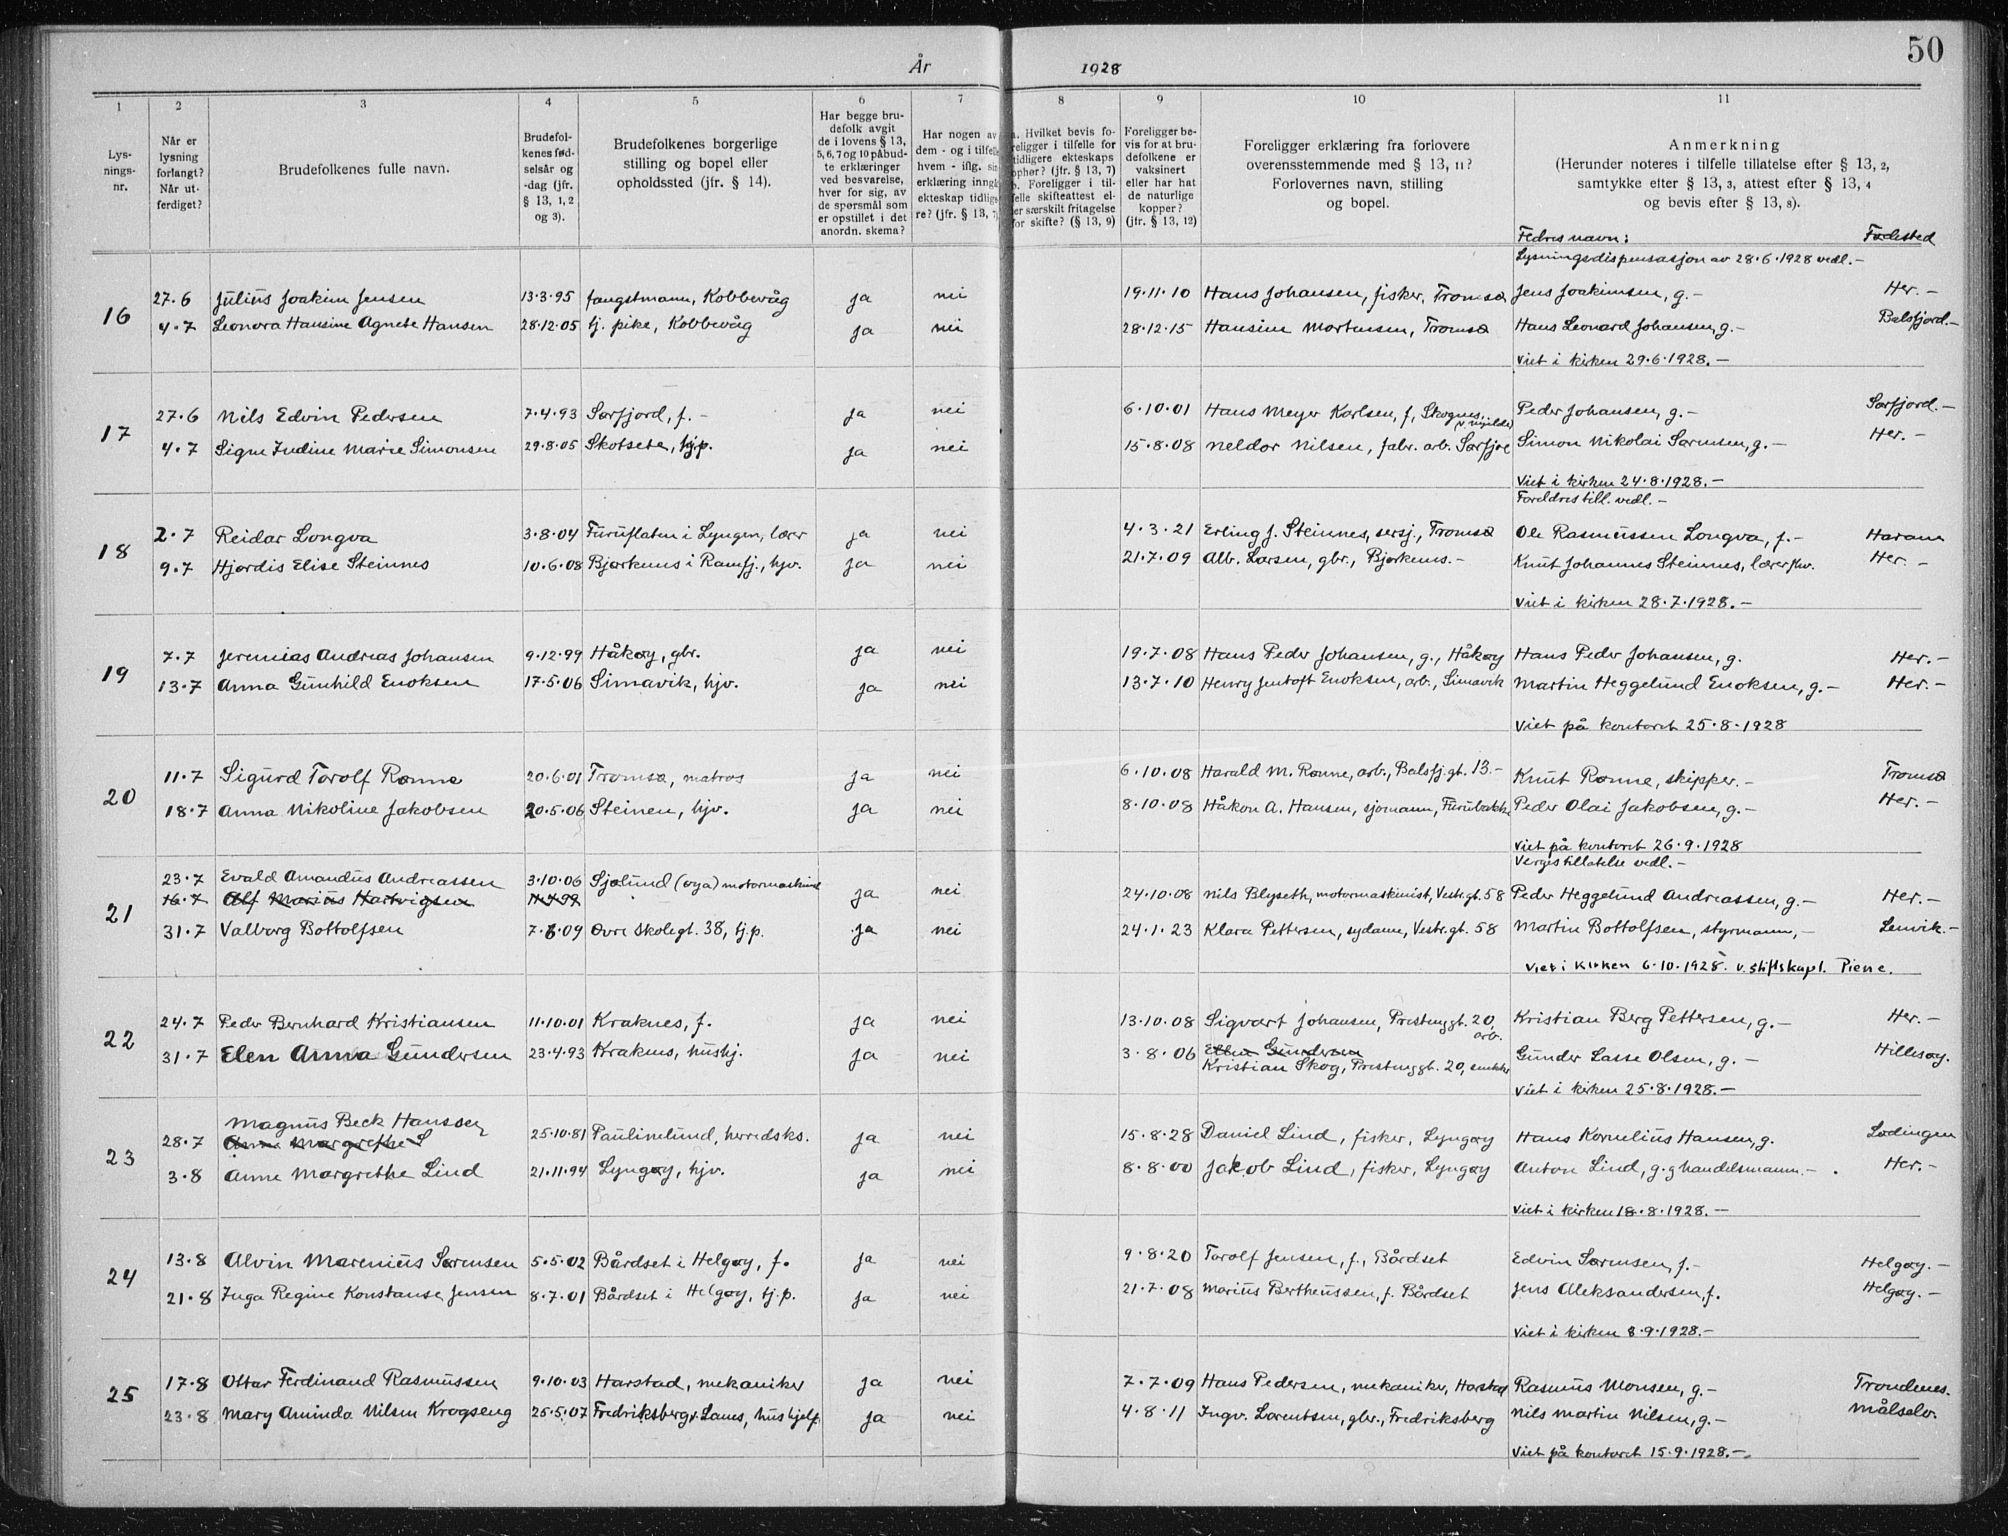 50
År 1928
1 2 3 4 5 6 7 8 9 10 11
Lysningsnr.
Når er lysning forlangt? Når utferdiget?
Brudefolkenes fulle navn.
Brudefolkenes fødselsår og -dag (jfr. § 13, 1, 2 og 3).
Brudefolkenes borgerlige stilling og bopel eller opholdssted (jfr. § 14).
Har begge brudefolk avgit de i lovens § 13, 5, 6, 7 og 10 påbudte erklæringer ved besvarelse, hver for sig, av de spørsmål som er opstillet i det anordn. skema?
Har nogen av dem - og i tilfelle hvem - iflg. sin erklæring inngk ekteskap tidligere? (jfr. § 13, 7)
a. Hvilket bevis foreligger i tilfelle for tidligere ekteskaps ophør? (jfr. § 13, 7) b. Foreligger i tilfelle skifteattest eller særskilt fritagelse for skifte? (§ 13, 9)
Foreligger bevis for at brudefolkene er vaksinert eller har hat de naturlige kopper? (jfr. § 13, 12)
Foreligger erklæring fra forlovere overensstemmende med § 13, 11? Forlovernes navn, stilling og bopel.
Anmerkning (Herunder noteres i tilfelle tillatelse efter § 13, 2, samtykke efter § 13, 3, attest efter § 13, 4 og bevis efter § 13, 8).
Fedres navn: Fødested
Lysningsdispensasjon av 28.6.1928 vedl. -
16 27.6 Julius Joakim Jensen 13.3.95 fangstmann, Kobbevåg ja nei 19.11.10 Hans Johansen, fisker, Tromsø Jens Joakimsen, g. - Her. -
4.7 Leonora Hansine Agnete Hansen 28.12.05 tj. pike, Kobbevåg ja nei 28.12.15 Hansine Mortensen, Tromsø Hans Leonard Johansen, g. - Balsfjord. -
Viet i kirken 29.6.1928. -
17 27.6 Nils Edvin Pedersen 7.4.93 Sørfjord, f. - ja nei 6.10.01 Hans Meyer Karlsen, f, Skognes, Peder Johansen, g. - Sørfjord. -
4.7 Signe Indine Marie Simonsen 29.8.05 Skotsete, tj.p. ja nei 15.8.08 Meldor Nilsen, fabr. arb. Sørfjo Simon Nikolai Sørensen, g. - Her. -
Viet i kirken 24.8.1928. -
Foreldres till. vedl. -
18 2.7 Reidar Longva 3.8.04 Furuflaten i Lyngen, lærer ja nei 4.3.21 Erling J. Steinnes, sersj., Tromsø Ole Rasmussen Longva, f. - Haram
9.7 Hjørdis Elise Steinnes 10.6.08 Bjørkenes i Ramfj., hjv. ja nei 21.7.09 Alb. Larsen, gbr., Bjørkenes. - Knut Johannes Steinnes, lærer Her. -
Viet i kirken 28.7.1928. -
19 7.7 Jeremias Andreas Johansen 9.12.99 Håkøy, gbr. ja nei 19.7.08 Hans Peder Johansen, g., Håkøy Hans Peder Johansen, g. Her. -
13.7 Anna Gunhild Enoksen 17.5.06 Simavik, hjv. ja nei 13.7.10 Henry Jentoft Enoksen, arb., Simavik Martin Heggelund Enoksen, g. - Her. -
Viet på kontoret 25.8.1928
20 11.7 Sigurd Torolf Rønne 20.6.01 Tromsø, matros ja nei 6.10.08 Harald M. Rønne, arb., Balsfj.gt. 13. - Knut Rønne, skipper. - Tromsø
18.7 Anna Nikoline Jakobsen 20.5.06 Steinen, hjv. ja nei 8.10.08 Håkon A. Hansen, sjømann, Furubakke Peder Olai Jakobsen, g. - Her. -
Viet på kontoret 26.9.1928
Verges tillatelse vedl. -
21 23.7 Evald Amandus Andreassen 3.10.06 Sjølund (øya) motormaskinist ja nei 24.10.08 Nils Blyseth, motormaskinist, Vestr.gt. 58 Peder Heggelund Andreassen, g. - Her. -
16.7 Alf Marius Hartvigsen 11.4.99
31.7 Valborg Bottolfsen 7.6.09 Øvre Skolegt. 38, tj.p. ja nei 24.1.23 Klara Pettersen, sydame, Vestr.gt. 58 Martin Bottolfsen, styrmann, - Lenvik. -
Viet i kirken 6.10.1928. v. stiftskapl. Piene.
22 24.7 Peder Bernhard Kristiansen 11.10.01 Kraknes, f. ja nei 13.10.08 Sigvart Johansen, Prestenggt. 20, arb. Kristian Berg Pettersen, g. - Her. -
31.7 Elen Anna Gundersen 23.4.93 Kraknes, hushj. ja nei 3.8.06 Ellen Gundersen Gunder Lasse Olsen, g. - Hillesøy.
Kristian Skog, Prestenggt. 20, snekker
Viet i kirken 25.8.1928. -
23 28.7 Magnus Beck Hanssen 25.10.81 Paulinelund, herredsks. ja nei 15.8.28 Daniel Lind, fisker, Lyngøy Hans Kornelius Hansen, g. Lødingen
Anne Margrethe S
3.8 Anne Margrethe Lind 21.11.94 Lyngøy, hjv. ja nei 8.8.00 Jakob Lind, fisker, Lyngøy Anton Lind, g. g handelsmann. - Her. -
Viet i kirken 18.8.1928. -
24 13.8 Alvin Marenius Sørensen 5.5.02 Bårdset i Helgøy, f. ja nei 9.8.20 Torolf Jensen, f., Bårdset Edvin Sørensen, f. - Helgøy. -
21.8 Inga Regine Konstanse Jensen 8.7.01 Bårdset i Helgøy, tj.p. ja nei 21.7.08 Marius Bertheussen, f. Bårdset Jens Aleksandersen, f. Helgøy. -
Viet i kirken 8.9.1928. -
25 17.8 Ottar Ferdinand Rasmussen 9.10.03 Harstad, mekaniker ja nei 7.7.09 Hans Pedersen, mekaniker, Harstad Rasmus Monsen, g. - Trondenes.
23.8 Mary Aminda Nilsen Krogseng 25.5.07 Fredriksberg v. Lanes, hushjelp. ja nei 4.8.11 Ingv. Lorentsen, gbr., Fredriksberg Nils Martin Nilsen, g. - Målselv.
Viet på kontoret 15.9.1928. -